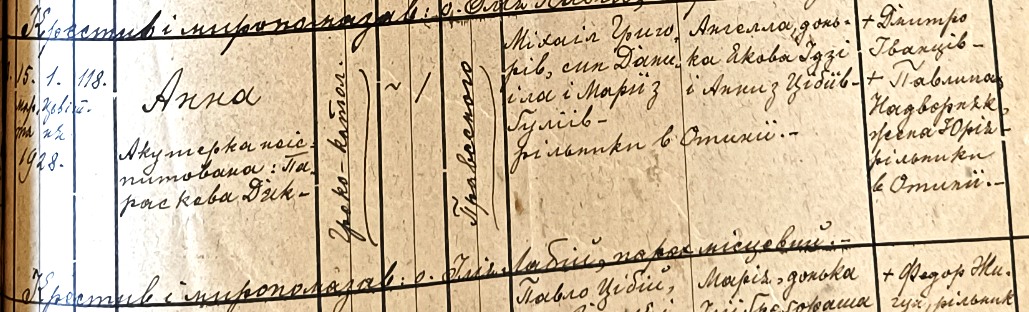 Крестив і миропомазав: о.
15. 1. 118.
марта Цвітня
1928.
Анна
Акушерка неіс-
питована: Па-
раскева Дик-
Греко-катол.
~ /
Правесного
Міхаіл Григо-
рів, син Дани-
іла і Марії з
Гуліїв-
рільники в Отинії.-
Ангелла, донь-
ка Якова Ідзі
і Анни з Цібіїв-
+ Дмитро
Іванців-
+ Павлина
Надворняк,
жена Юрія-
рільники
в Отинії.-
Крестив і миропомазав: о. Ілія Лабій, парох місцевий.-
Павло Цібій,
Марія, донька
+ Федор Жи-
рільник